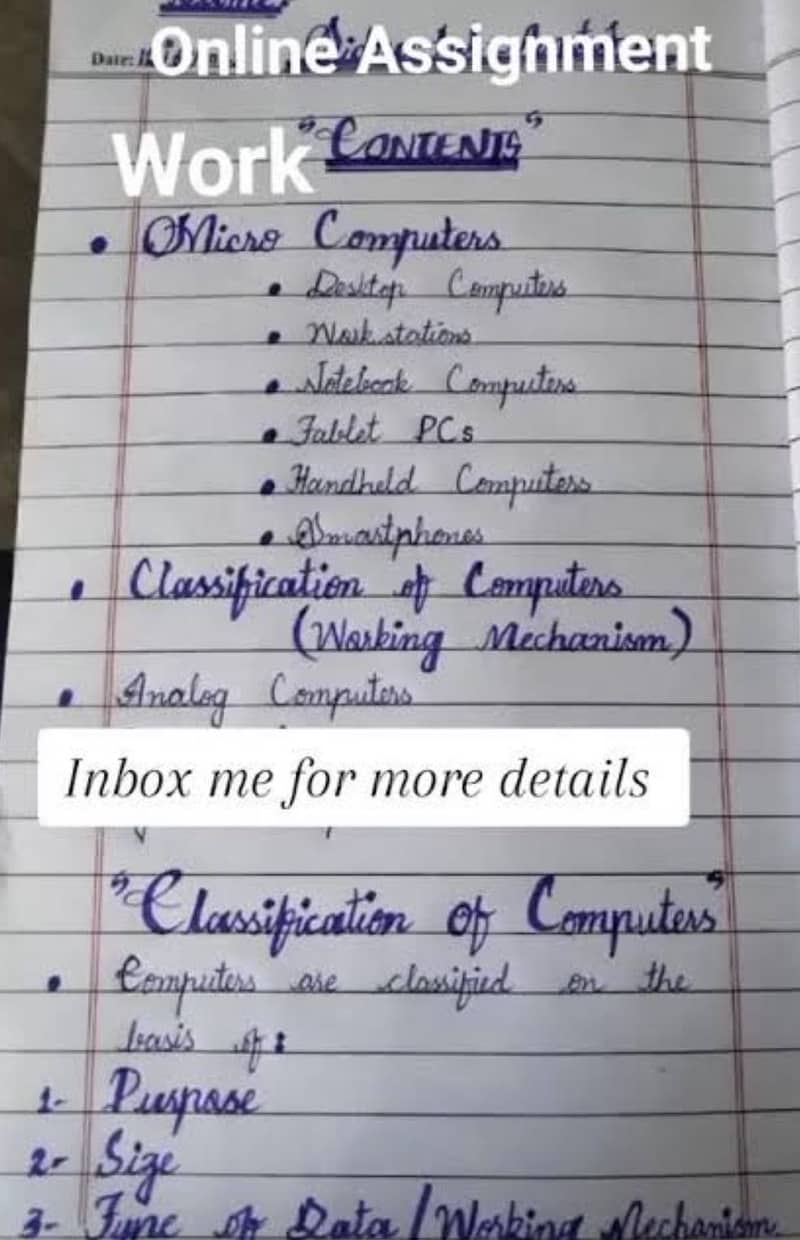 Online Assignment
Date:
Work
"CONTENTS"
• Micro Computers
• Desktop Computers
• Workstations
• Notebook Computers
• Tablet PCs
• Handheld Computers
• Smartphones
• Classification of Computers
(Working Mechanism)
• Analog Computers
Inbox me for more details
"Classification of Computers"
• Computers are classified on the
basis of:
1- Purpose
2- Size
3- Type of Data / Working Mechanism